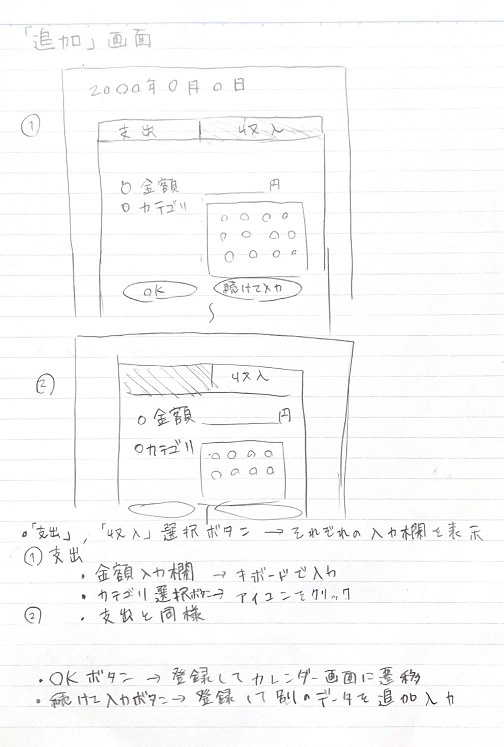 「追加」画面
2000年0月0日
①
支出 収入
○ 金額 円
○ カテゴリ
OK 続けて入力
②
収入
○ 金額 円
○ カテゴリ
○「支出」,「収入」選択ボタン → それぞれの入力欄を表示
① 支出
・金額入力欄 → キボードで入力
・カテゴリ選択ボタン → アイコンをクリック
② ・支出と同様
・OKボタン → 登録してカレンダー画面に遷移
・続けて入力ボタン → 登録して別のデータを追加入力